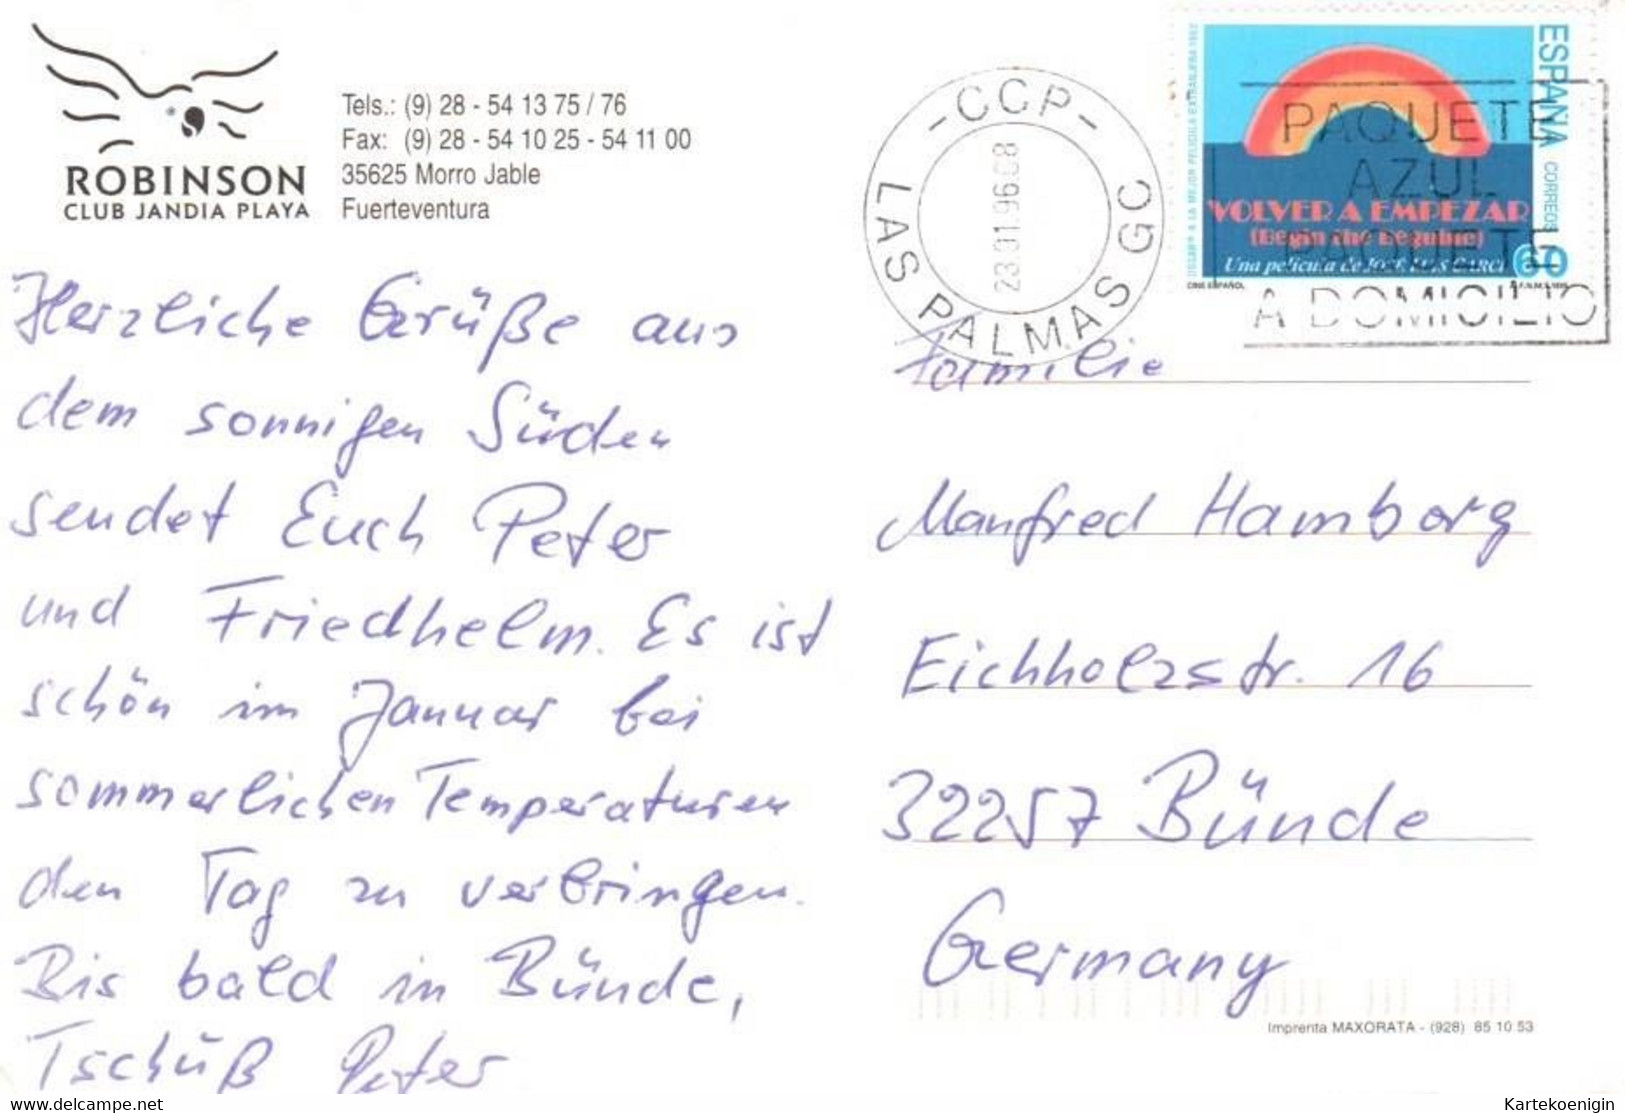 ROBINSON
CLUB JANDIA PLAYA
Tels.: (9) 28 - 54 13 75 / 76
Fax: (9) 28 - 54 10 25 - 54 11 00
35625 Morro Jable
Fuerteventura
Herzliche Grüße aus
dem sonnigen Süden
sendet Euch Peter
und Friedhelm. Es ist
schön im Januar bei
sommerlichen Temperaturen
den Tag zu verbringen.
Bis bald in Bünde,
Tschüß Peter
-CCP-
LAS PALMAS GC
23.01.96
PAQUETE
AZUL
PAQUETE
A DOMICILIO
ESPAÑA CORREOS
OSCAR A LA MEJOR PELICULA EXTRANJERA 1982
VOLVER A EMPEZAR
(Begin the Beguine)
Una película de JOSE LUIS GARCI
60
CINE ESPAÑOL
Familie
Manfred Hamborg
Eichholzstr. 16
32257 Bünde
Germany
Imprenta MAXORATA - (928) 85 10 53
www.delcampe.net
Kartekoenigin